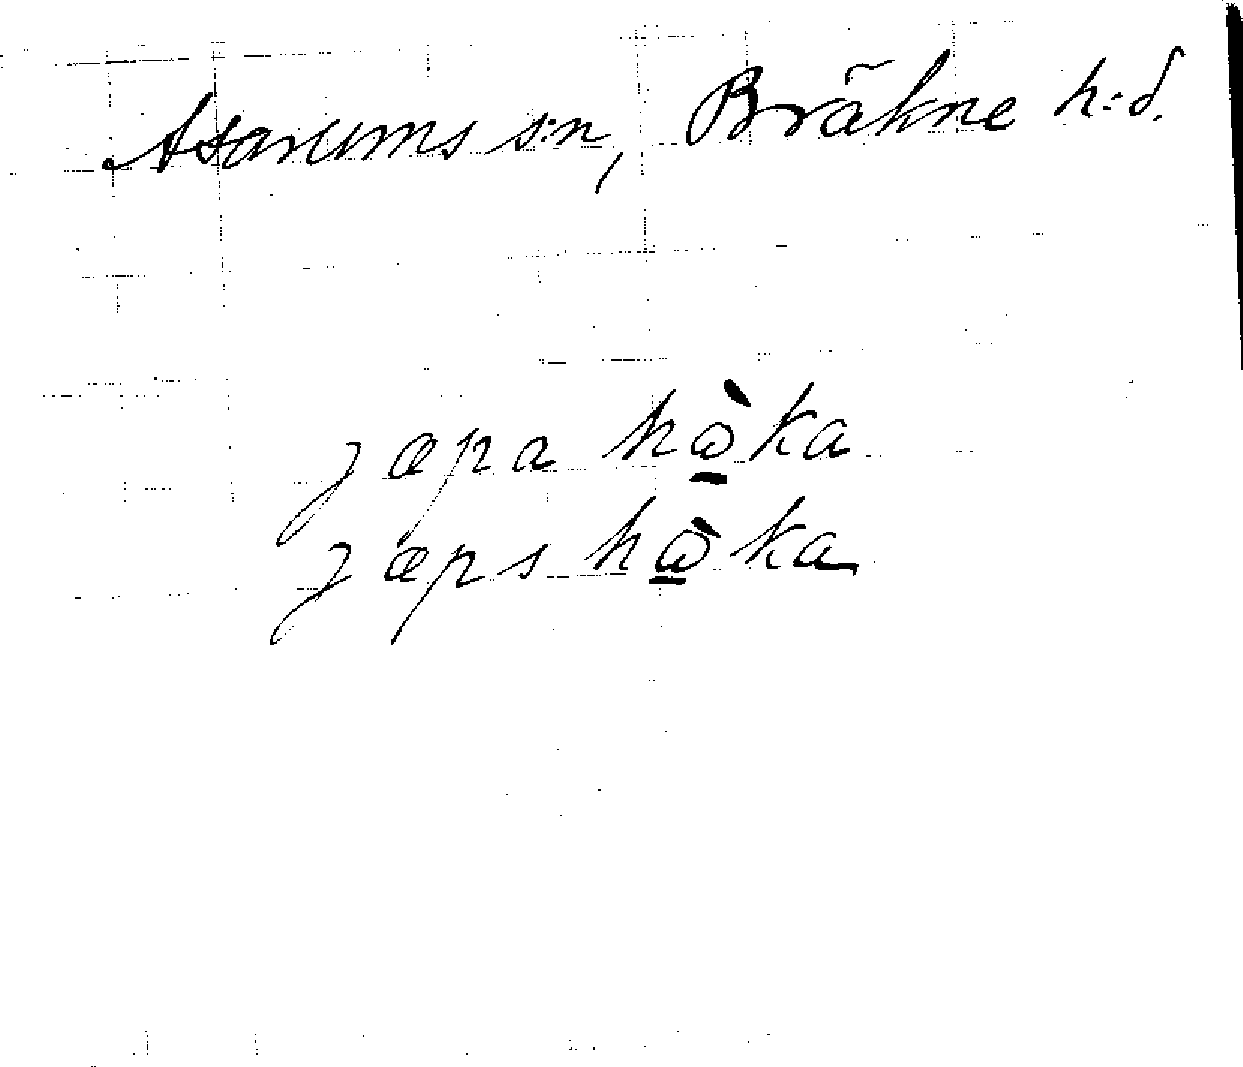 Asarums s:n, Bräkne h:d.
jæpa hὼ̱ka
jæps hὼ̱ka